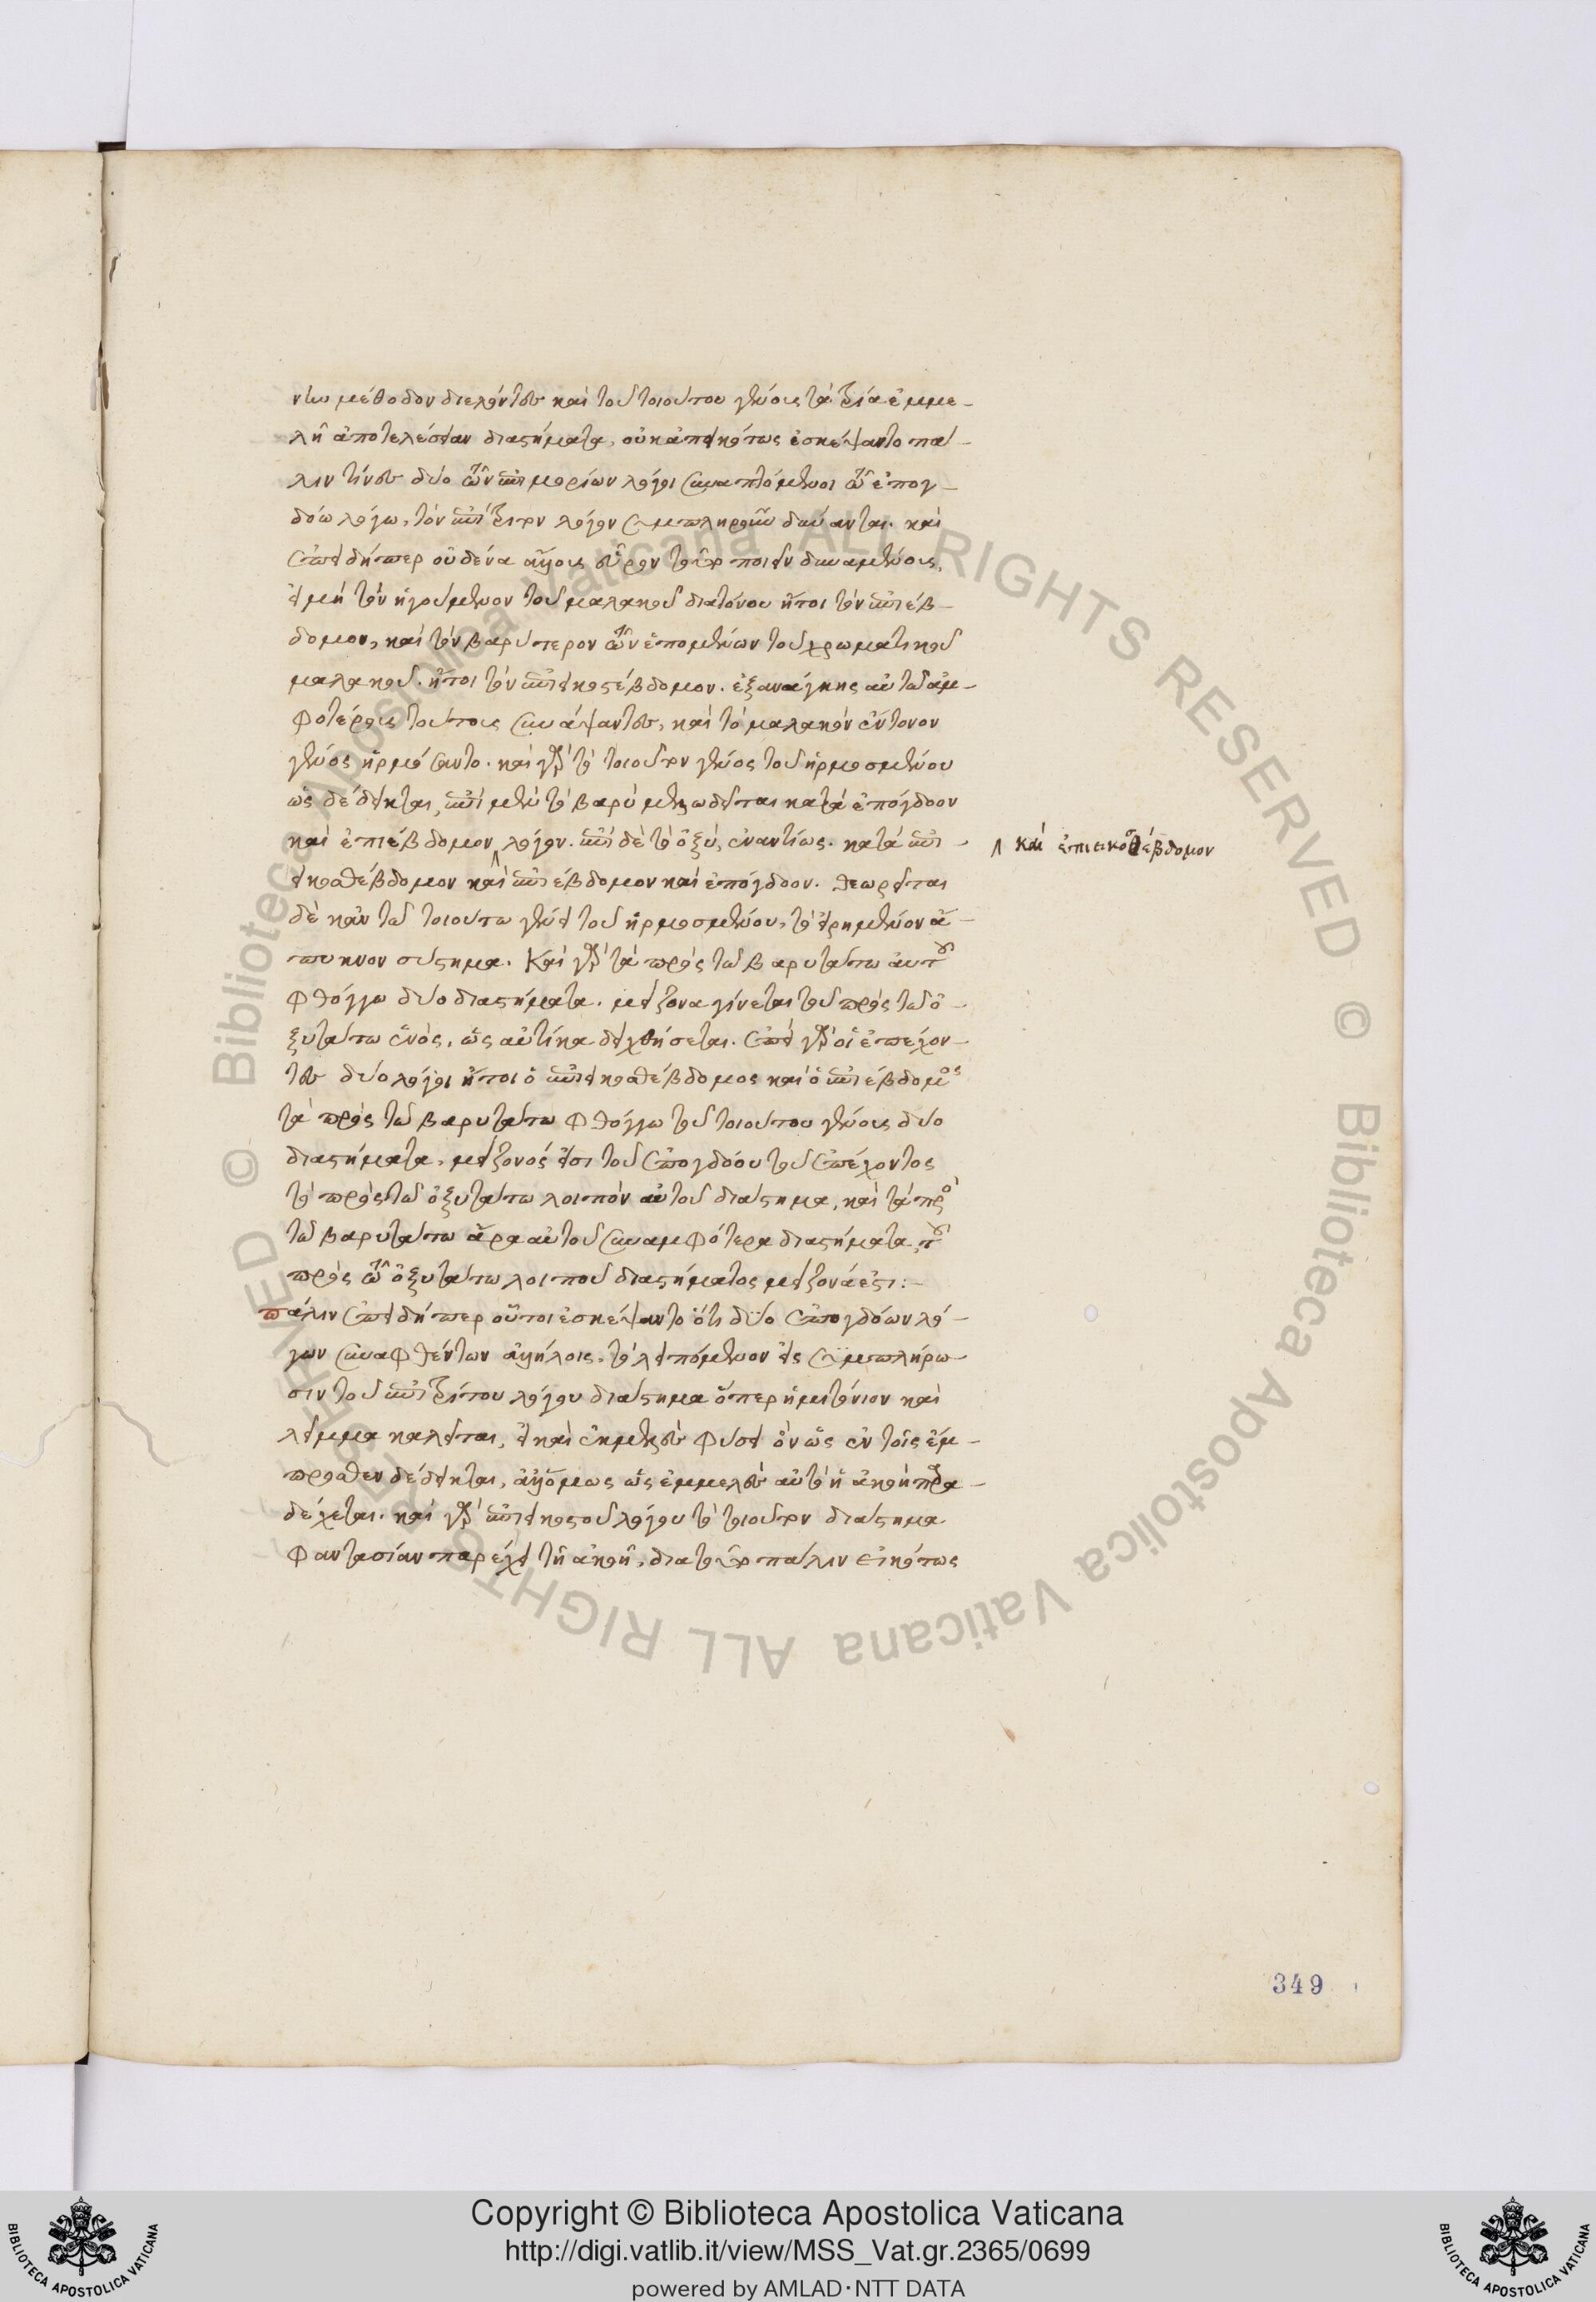 νην μέθοδον διελόντες καὶ τοῦ τοιούτου γένους τὰ τρία ἐμμε-
λῆ ἀποτελέσειαν διαστήματα, οὐκ ἀπεικότως ἐσκέψαντο πά-
λιν τίνες δύο τῶν ἐπιμορίων λόγοι συναπτόμενοι τῷ ἐπογ-
δόω λόγω, τὸν ἐπίτριτον λόγον συμπληροῦν δύνανται. καὶ
ἐπειδήπερ οὐδένα ἄλλους εὗρον τοῦτο ποιεῖν δυναμένους,
εἰ μὴ τὸν ἡγούμενον τοῦ μαλακοῦ διατόνου ἤτοι τὸν ἐπιέβ-
δομον, καὶ τὸν βαρύτερον τῶν ἑπομένων τοῦ χρωματικοῦ
μαλακοῦ. ἤτοι τὸν ἐπιεικοστέβδομον. ἐξανάγκης αὐτῶ ἀμ-
φοτέρους τούτους συνάψαντες, καὶ τὸ μαλακὸν ἔντονον
γένος ἡρμόσαντο. καὶ γὰρ τὸ τοιοῦτον γένος τοῦ ἡρμοσμένου
ὡς δέδεικται, ἐπὶ μὲν τὸ βαρὺ μελωδεῖται κατὰ ἐπόγδοον
καὶ ἐπιέβδομον λόγον. ἐπὶ δὲ τὸ ὀξὺ, ἐναντίως. κατὰ ἐπι-
Λ καὶ ἐπιεικοστέβδομον
εικοσθέβδομον καὶ ἐπιέβδομον καὶ ἐπόγδοον. θεωρεῖται
δὲ κἀν τῶ τοιούτω γένει τοῦ ἡρμοσμένου, τὸ εἰρημένον ἄ-
πυκνον σύστημα. Καὶ γὰρ τὰ πρὸς τῶ βαρυτάτω αὐτοῦ
φθόγγω δύο διαστήματα. μείζονα γίνεται τοῦ πρὸς τῶ ὀ-
ξυτάτω ἑνὸς, ὡς αὐτίκα δειχθήσεται. ἐπεὶ γὰρ οἱ ἐπέχον-
τες δύο λόγοι ἤτοι ὁ ἐπιεικοσθέβδομος καὶ ὁ ἐπιέβδομος
τὰ πρὸς τῶ βαρυτάτω φθόγγω τοῦ τοιούτου γένους δύο
διαστήματα, μείζονός εἰσι τοῦ ἐπογδόου τοῦ ἐπέχοντος
τὸ πρὸς τῶ ὀξυτάτω λοιπὸν αὐτοῦ διάστημα, καὶ τὰ πρὸς
τῶ βαρυτάτω ἄρα αὐτοῦ συναμφότερα διαστήματα, τοῦ
πρὸς τῶ ὀξυτάτω λοιποῦ διαστήματος μείζονά ἐστι:-
πάλιν ἐπειδήπερ οὗτοι ἐσκέψαντο ὅτι δύο ἐπογδόων λό-
γων συναφθέντων ἀλλήλοις, τὸ λειπόμενον εἰς συμπλήρω
σιν τοῦ ἐπιτρίτου λόγου διάστημα ὅπερ ἡμιτόνιον καὶ
λεῖμμα καλεῖται, εἰ καὶ ἐκμελὲς φύσει ὂν ὡς ἐν τοῖς ἔμ-
προσθεν δέδεικται, ἀλλ' ὅμως ὡς ἐμμελὲς αὐτὸ ἡ ἀκοὴ παρα-
δέχεται. καὶ γὰρ ἐπιεικοστοῦ λόγου τὸ τοιοῦτον διάστημα
φαντασίαν παρέχει τῇ ἀκοῇ, διατοῦτο πάλιν εἰκότως
349
Copyright © Biblioteca Apostolica Vaticana
http://digi.vatlib.it/view/MSS_Vat.gr.2365/0699
powered by AMLAD·NTT DATA